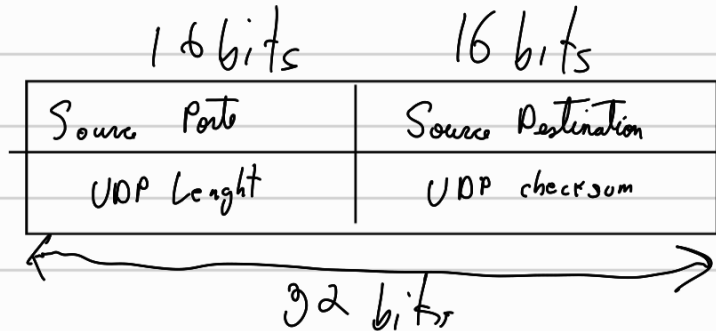 16 bits 16 bits
Source Porte Source Destination
UDP Lenght UDP checksum
32 bits